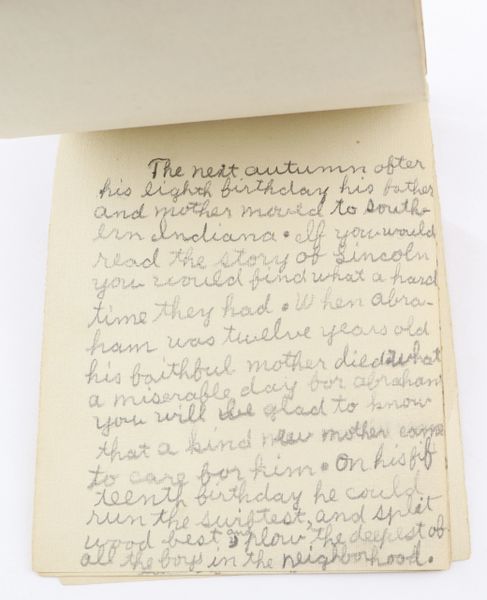 The next autumn after
his eighth birthday his father
and mother moved to South-
ern Indiana. If you would
read the story of Lincoln
you would find what a hard
time they had. When Abra-
ham was twelve years old
his faithful mother died. What
a miserable day for abraham
you will be glad to know
that a kind new mother came
to care for him. On his fif
teenth birthday he could
run the swiftest, and split
wood best, and plow the deepest of
all the boys in the neighborhood.